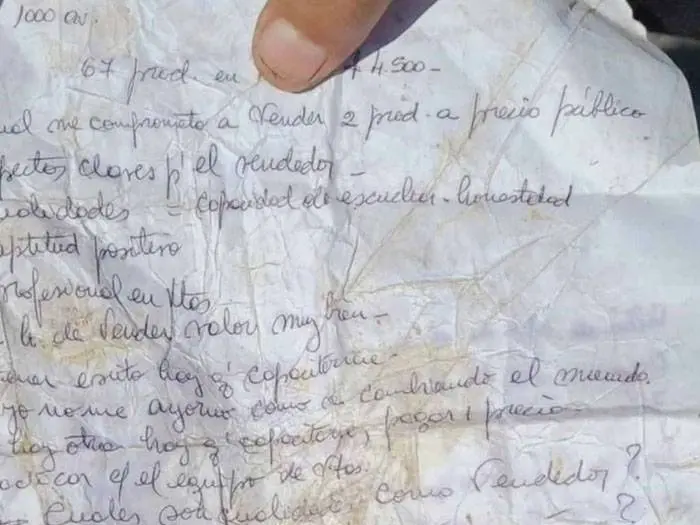 1000 av.
67 prod. en $ 4.500-
ual me comprometo a Vender 2 prod. a precio público
pectos claves p' el vendedor -
ualidades - capacidad de escuchar. honestidad
aptitud positivo
profesional en Vtas
h. de Vender valor muy bien -
exito hay q' capacitarme -
yo no me ayorno como va cambiando el mundo.
hay otra hay q' capacitarse, pagar 1 precio -
c/ el equipo de Vtas.
- Cuales son cualidades como Vendedor ?
- ?